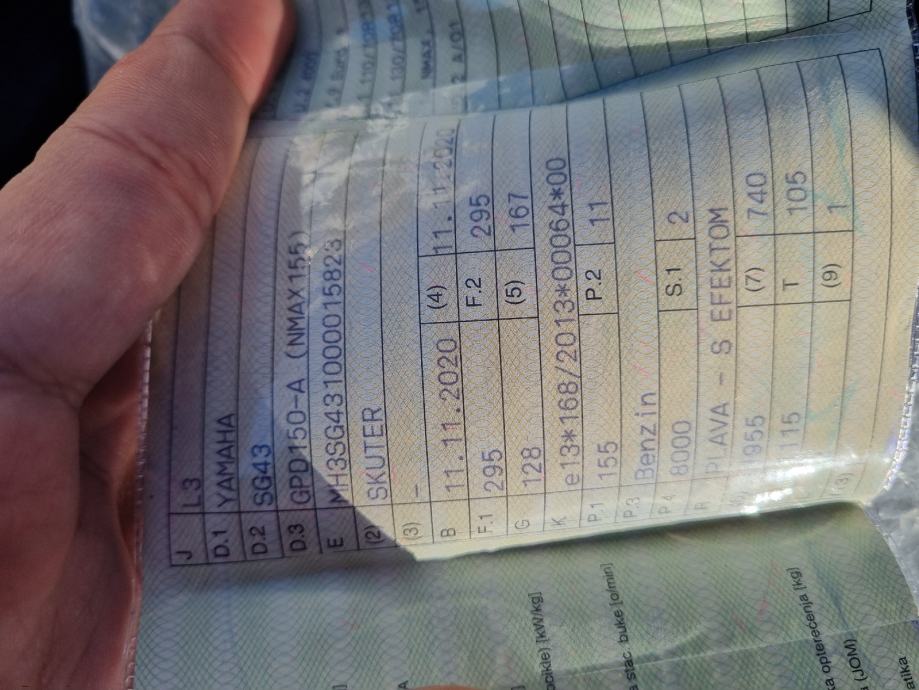 J L3
D.1 YAMAHA
D.2 SG43
D.3 GPD150-A (NMAX155)
E MH3SG431000015823
(2) SKUTER
(3) -
B 11.11.2020 (4) 11.11.2020
F.1 295 F.2 295
G 128 (5) 167
K e13*168/2013*00064*00
P.1 155 P.2 11
P.3 Benzin
P.4 8000 S.1 2
R PLAVA - S EFEKTOM
955 (7) 740
115 T 105
(9) 1
[kW/kg]
stac. buke [o/min]
opterećenja [kg]
(JOM)